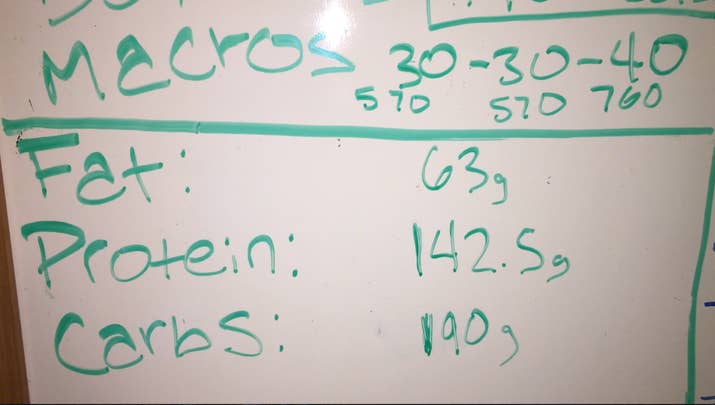 Macros 30-30-40
570 570 760
Fat: 63g
Protein: 142.5g
Carbs: 190g